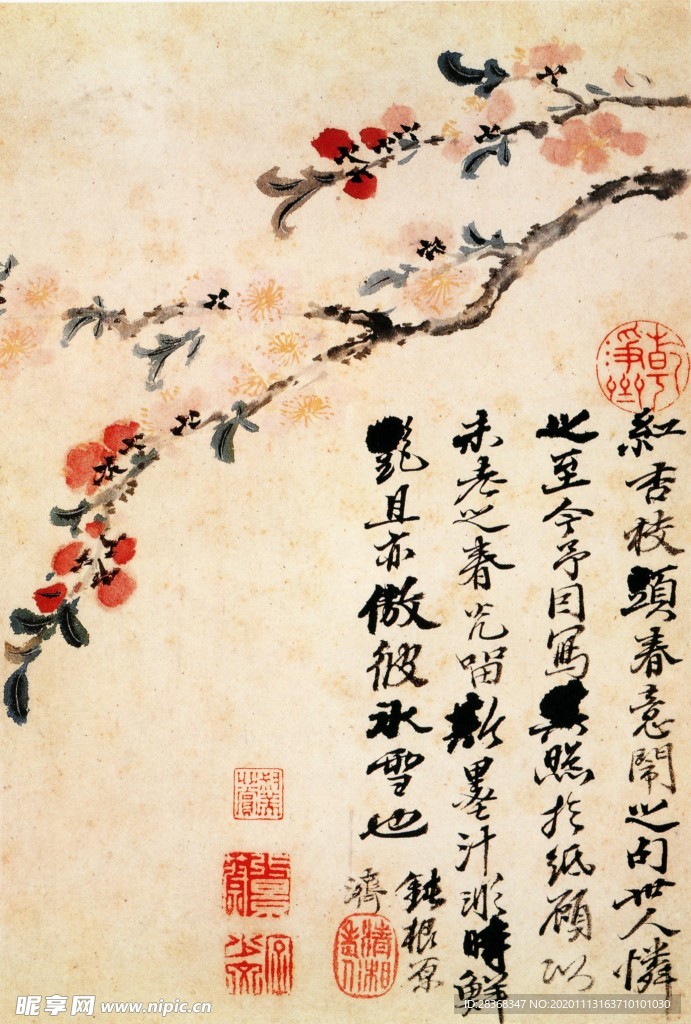 紅杏枝頭春意鬧之句世人憐
之至今予因寫其照於紙願以
未老之春光留斯墨汁彩時鮮
艷且亦傲彼冰雪也
鈍根原
濟
昵享网 www.nipic.cn
ID:28368347 NO:20201113163710101030